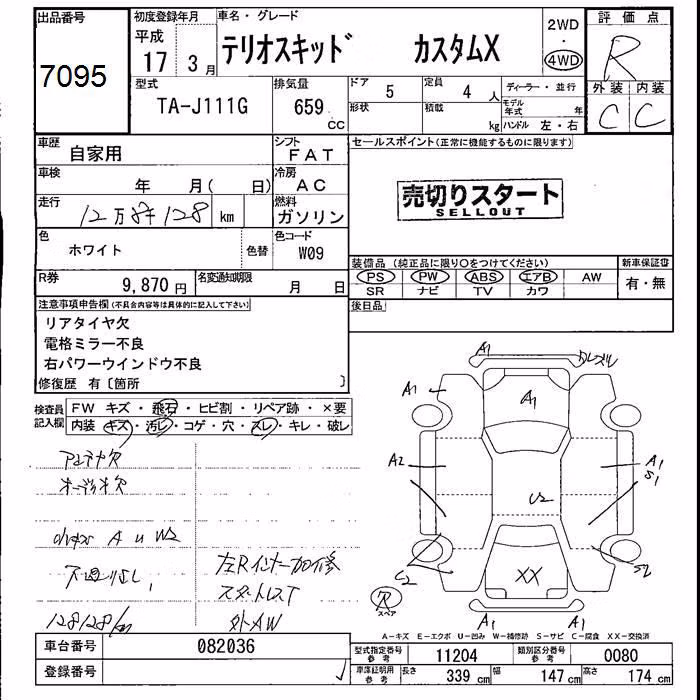 出品番号 初度登録年月 車名・グレード 2WD 評価点
7095 平成 テリオスキッド カスタムX ・
17 3月 4WD R
型式 排気量 ドア 5 定員 4 人 ディーラー・並行 外装 内装
TA-J111G 659 cc 形状 積載 kg モデル年式 年 C C
ハンドル 左・右
車歴 自家用 シフト FAT セールスポイント(正常に機能するものに限ります)
車検 年 月( 日) 冷房 AC
走行 12万8千128 km 燃料 ガソリン 売切りスタート
SELLOUT
色 ホワイト 色替 色コード W09
装備品 (純正品に限り○をつけてください) 新車保証書
R券 9,870 円 名変通知期限 月 日 PS PW ABS エアB AW 有・無
SR ナビ TV カワ
注意事項申告欄(不具合内容等は具体的に記入して下さい) 後日品
リアタイヤ欠
電格ミラー不良
右パワーウインドウ不良
修復歴 有〔箇所 〕
検査員記入欄 FW キズ・飛石・ヒビ割・リペア跡・×要
内装 キズ・汚レ・コゲ・穴・スレ・キレ・破レ
A1
A1 A1
アンテナ欠 A2 A1
オーディオ欠 S1
U2
A U W2
左Rインナー加修 C2 XX S2
スタットレスT R
128128km 外AW スペア A1 A1
A-キズ E-エクボ U-凹み W-補修跡 S-サビ C-腐食 XX-交換済
車台番号 082036 型式指定番号 参考 11204 類別区分番号 参考 0080
登録番号 車庫証明用 参考 長さ 339 cm 幅 147 cm 高さ 174 cm